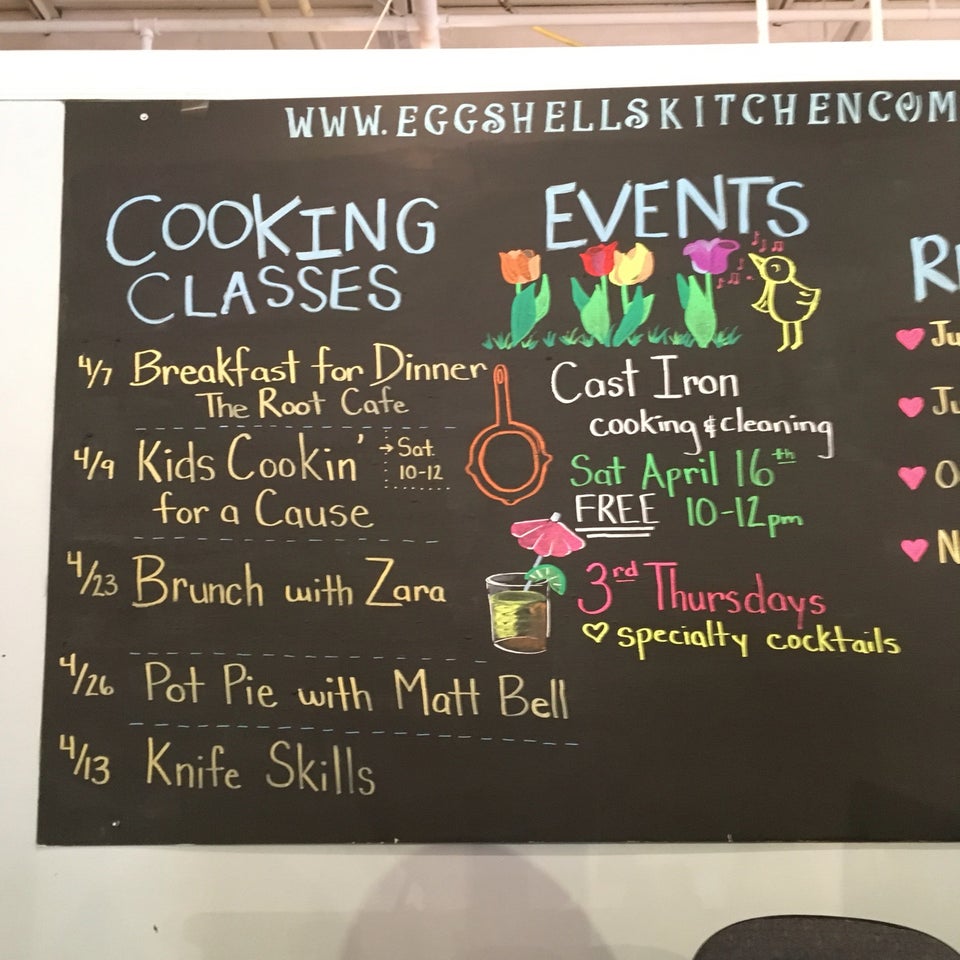 WWW.EGGSHELLSKITCHENCOM
COOKING
CLASSES
4/7 Breakfast for Dinner
The Root Cafe
4/9 Kids Cookin' → Sat.
10-12
for a Cause
4/23 Brunch with Zara
4/26 Pot Pie with Matt Bell
4/13 Knife Skills
EVENTS
Cast Iron
cooking & cleaning
Sat April 16th
FREE 10-12pm
3rd Thursdays
♡ specialty cocktails
R
Ju
Ju
O
N